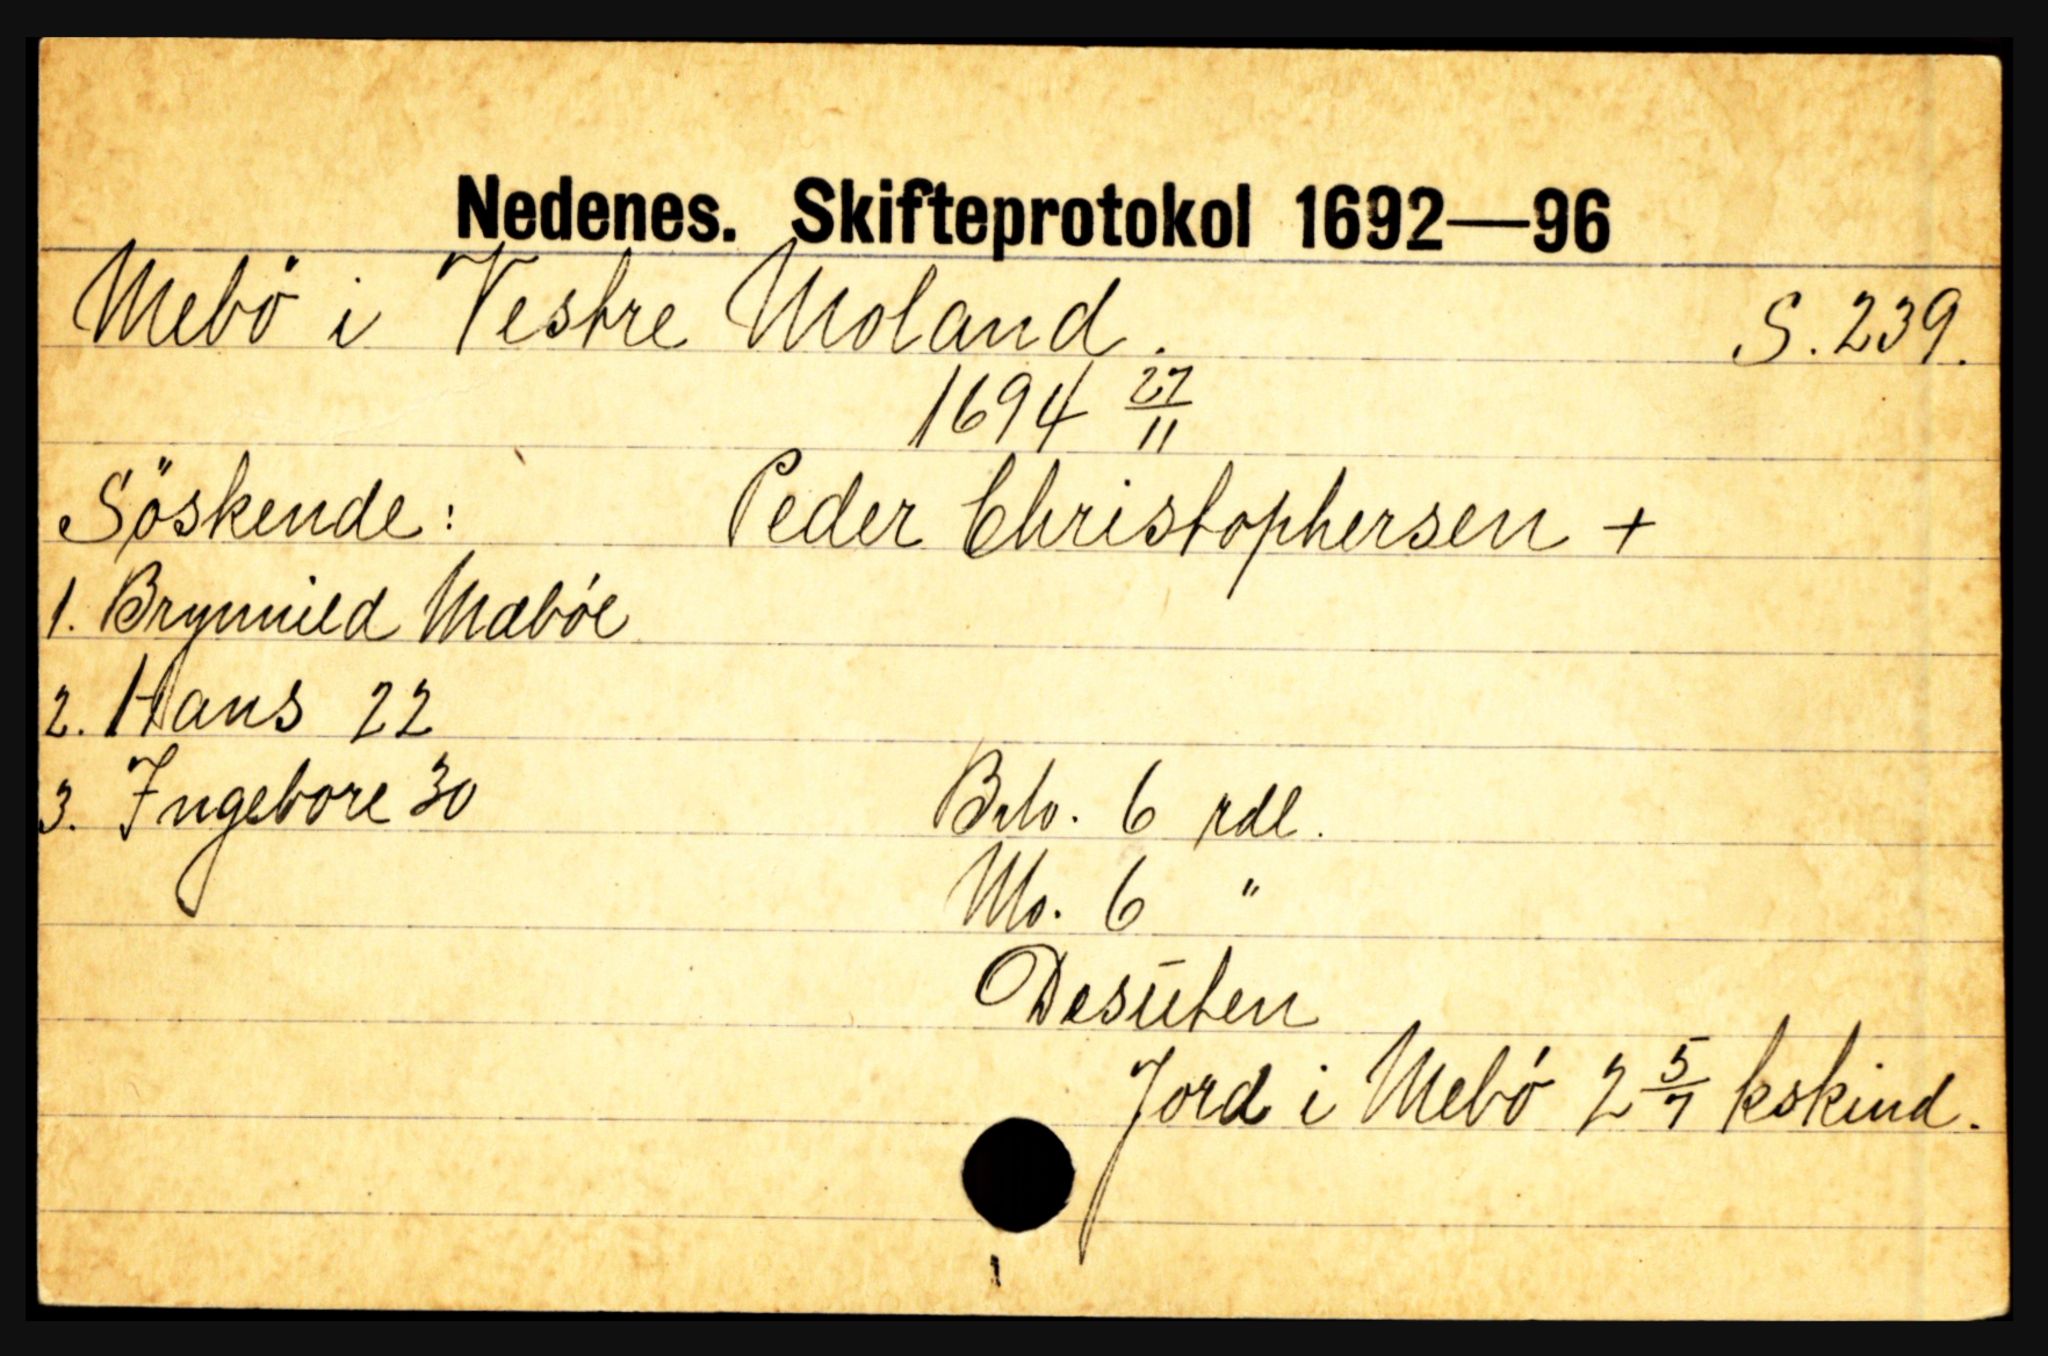 Nedenes. Skifteprotokol 1692—96
Mebö i Vestre Moland. S. 239.
1694 27/11
Söskende: Peder Christophersen +
1. Brynnild Mæbøe
2. Hans 22
3. Ingebore 30
Brto. 6 rdl.
Mo. 6 "
Desuten
Jord i Mebö 2 5/7 kskind.